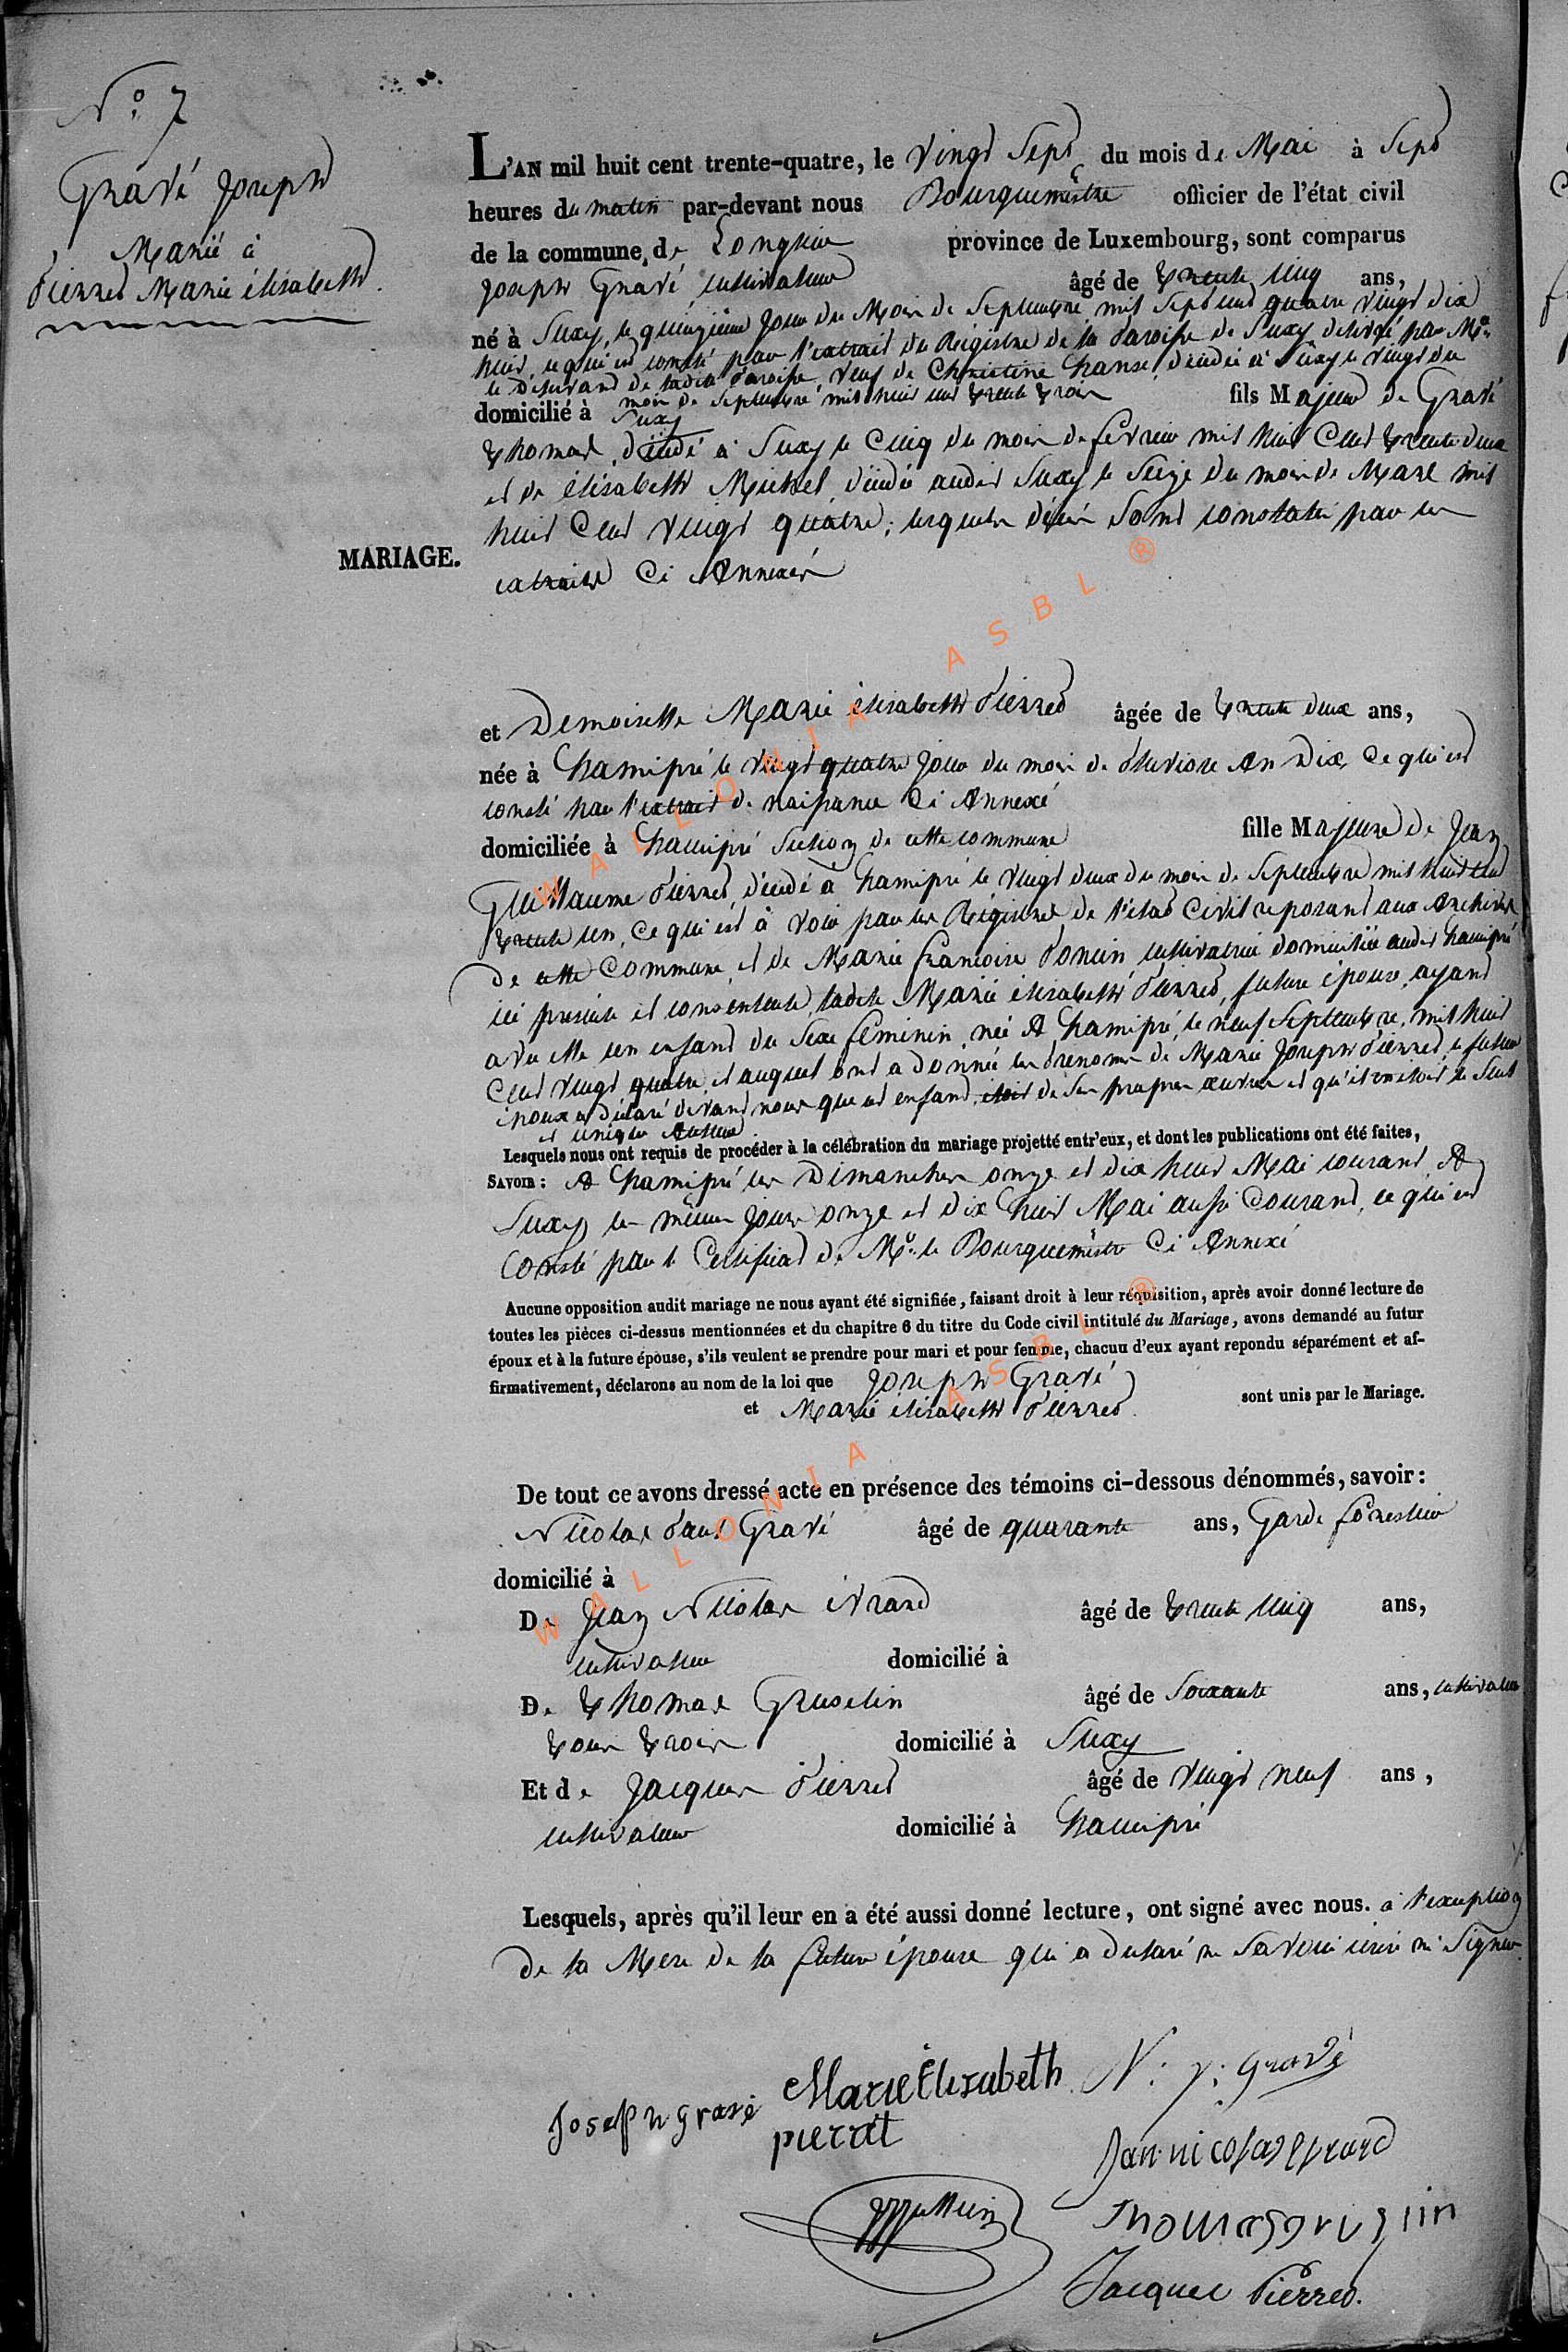 N° 7
Gravé Joseph
Marié à
Pierret Marie élisabeth
L'AN mil huit cent trente-quatre, le vingt Sept du mois de Mai à Sept
heures du matin par-devant nous Bourguemêstre officier de l'état civil
de la commune de Longlier province de Luxembourg, sont comparus
Joseph Gravé, cultivateur âgé de trente cinq ans,
né à Suxy, le quinzième jour du Mois de Septembre mil Sept cent quatre vingt dix
huit, ce qui est consté par l'extrait du Régistre de la Paroisse de Suxy délivré par Mr.
le Désservant de ladite Paroisse, veuf de Christine hansé, décédée à Suxy le vingt du
mois de Septembre mil huit cent trente trois
domicilié à Suxy fils Majeur de Gravé
thomas, décédé à Suxy le Cinq du mois de février mil huit Cent trente deux
et de élisabeth Michel, décédée audit Suxy le Seize du mois de Mars mil
huit Cent vingt quatre; lesquels décès sont constatés par les
extraits Ci Annexés
MARIAGE.
et Demoiselle Marie élisabeth Pierret âgée de trente deux ans,
née à hamipré le vingt quatre jour du mois de Pluviose An Dix, Ce qui est
consté par l'extrait de naissance Ci Annexé
domiciliée à hamipré Section de cette commune fille Majeure de Jean
Guillaume Pierret, décédé à hamipré le vingt deux du mois de Septembre mil huit cent
trente un, Ce qui est à voir par les Régistres de l'état Civil reposant aux Archives
de cette Commune, et de Marie francoise Poncin cultivatrice domiciliée audit hamipré
ici presente et consentente, ladite Marie élisabeth Pierret, future épouse, ayant
avu elle un enfant du Sexe féminin, née A hamipré, le neuf Septembre, mil huit
Cent vingt quatre, et auquel ont a donnée les Prenoms de Marie Joseph Pierret, le futur
époux a déclaré devant nous que cet enfant étoit de Ses propres œuvres et qu'il en étoit le Seul
et unique Auteur
Lesquels nous ont requis de procéder à la célébration du mariage projetté entr'eux, et dont les publications ont été faites,
SAVOIR: A hamipré les Dimanches onze et dix huit Mai courant, A
Suxy les mêmes jours onze et dix huit Mai aussi Courant, ce qui est
Consté par le Certificat de Mr. le Bourguemêstre Ci Annexé
Aucune opposition audit mariage ne nous ayant été signifiée, faisant droit à leur réquisition, après avoir donné lecture de
toutes les pièces ci-dessus mentionnées et du chapitre 6 du titre du Code civil intitulé du Mariage, avons demandé au futur
époux et à la future épouse, s'ils veulent se prendre pour mari et pour femme, chacun d'eux ayant repondu séparément et af-
firmativement, déclarons au nom de la loi que Joseph Gravé
et Marie élisabeth Pierret sont unis par le Mariage.
De tout ce avons dressé acte en présence des témoins ci-dessous dénommés, savoir:
Nicolas Paul Gravé âgé de quarante ans, Garde forestier
domicilié à
De Jean Nicolas évrard âgé de trente cinq ans,
cultivateur domicilié à
De thomas Gruselin âgé de Soixante ans, cultivateur
tous trois domicilié à Suxy
Et de Jacques Pierret âgé de vingt neuf ans,
cultivateur domicilié à hamipré
Lesquels, après qu'il leur en a été aussi donné lecture, ont signé avec nous. à l'exception
De la Mere de la future épouse qui a déclaré ne Savoir écrire ni Signer.
Joseph gravé
Marie Elisabeth
pierret
N: p: gravé
Jan nicolas evrard
Thomas gruslin
Jacque Pierret.
WALLONIA ASBL ®
WALLONIA ASBL ®